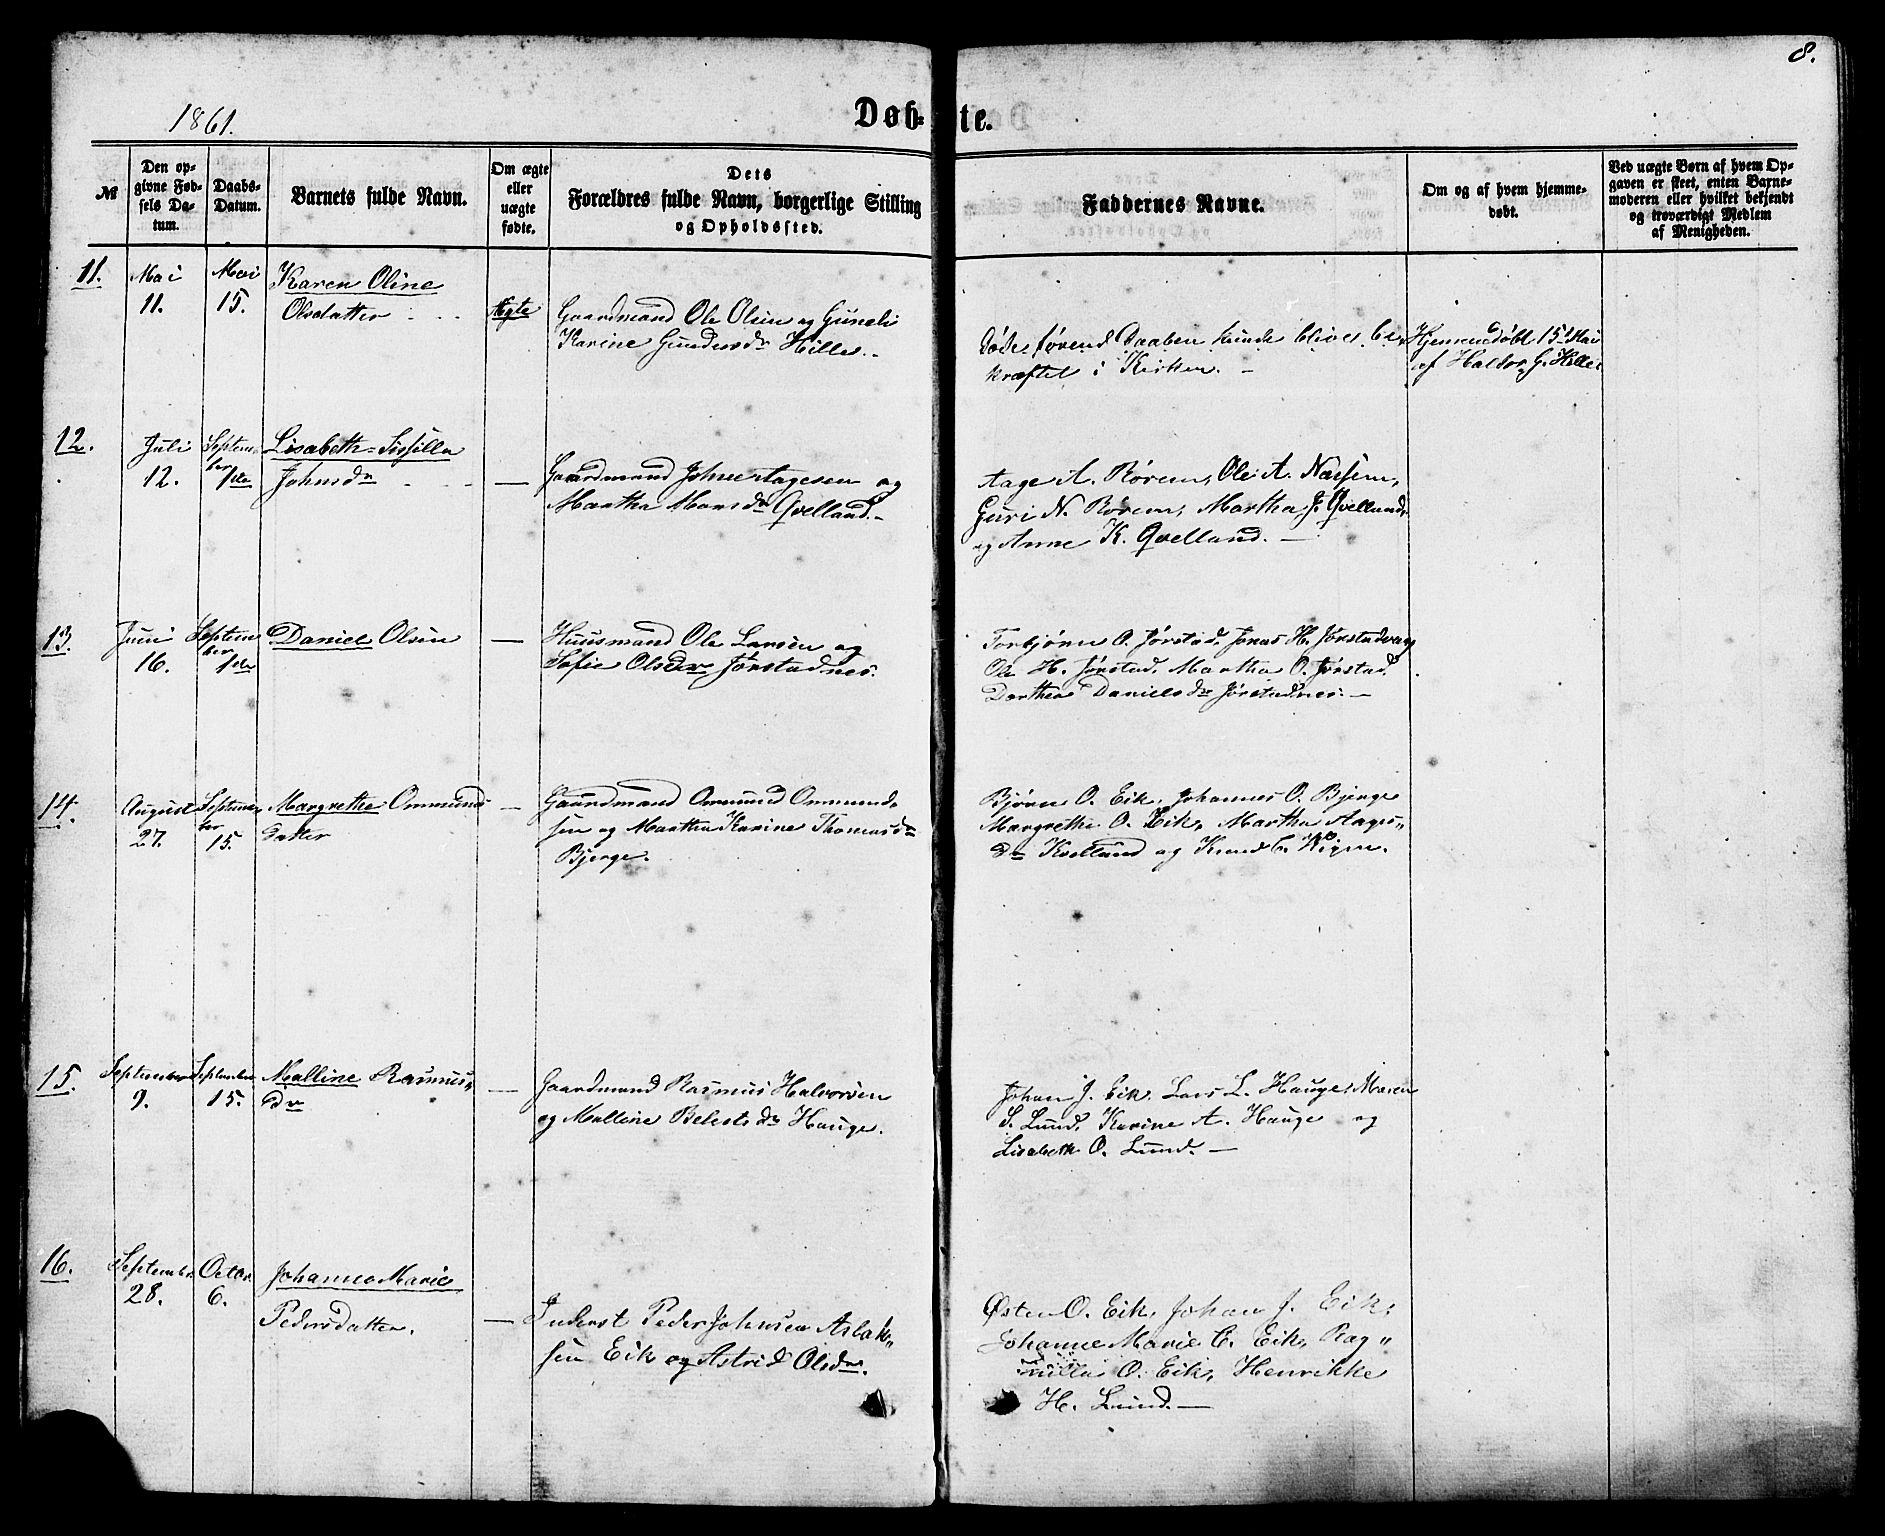 8.
1861.
Døb-
te.
№
Den op-
givne Fød-
sels Da-
tum.
Daabs-
Datum.
Barnets fulde Navn.
Om ægte
eller
uægte
fødte.
Dets
Forældres fulde Navn, borgerlige Stilling
og Opholdssted.
Faddernes Navne.
Om og af hvem hjemme-
døbt.
Ved uægte Børn af hvem Op-
gaven er skeet, enten Barne-
moderen eller hvilket bekjendt
og troværdigt Medlem
af Menigheden.
11.
Mai
11.
Mai
15.
Karen Oline
Olsdatter
Ægte
Gaardmand Ole Olsen og Guneli
Karine Gundersdr Hille.
Døde førend Daaben kunde blive be-
kræftet i Kirken. —
Hjemmedøbt 15de Mai
af Haldor G. Hille
12.
Juli
12.
Septem-
ber
1ste
Lisabeth=Sissilla
Johnsdr
—
Gaardmand Johne Aagesen og
Martha Monsdr Qvelland.-
Aage A. Rørem, Ole A. Næssem,
Guri N. Rørem, Martha J. Qvelland
og Anne K. Qvelland. —
13.
Juni
16.
Septem
ber
1ste
Daniel Olsen
—
Huusmand Ole Larsen og
Sofie Olsdr Jørstadnes.
Torbjørn O. Jørstad, Jonas H. Jørstadvaag
Ole H. Jørstad, Martha O. Jørstad
Dorthea Danielsdr Jørstadnes. —
14.
August
27.
Septem-
ber
15.
Margrethe Ommunds
datter
—
Gaardmand Ommund Ommund-
sen og Martha Karine Thomasdr
Bjerge.
Bjørn O. Eik, Johannes O. Bjerge
Margrethe O. Eik, Martha Aages"
dr Kvelland og Knud C. Vigen.
15.
September
9.
September
15.
Malline Rasmus"
dr
—
Gaardmand Rasmus Halvorsen
og Malline Belestsdr Hauge.
Johan J. Eik, Lars L. Hauge, Maren
S. Lund, Karine A. Hauge og
Lisabeth O. Lund. —
16.
September
28.
Octor
6.
Johanne Marie
Pedersdatter.
—
Inderst Peder Johnsen Aslak"
sen Eik og Astrid Olsdr.
Østen O. Eik, Johan J. Eik,
Johanne Marie C. Eik, Rag"
nilla O. Eik, Henrikke
H. Lund. —